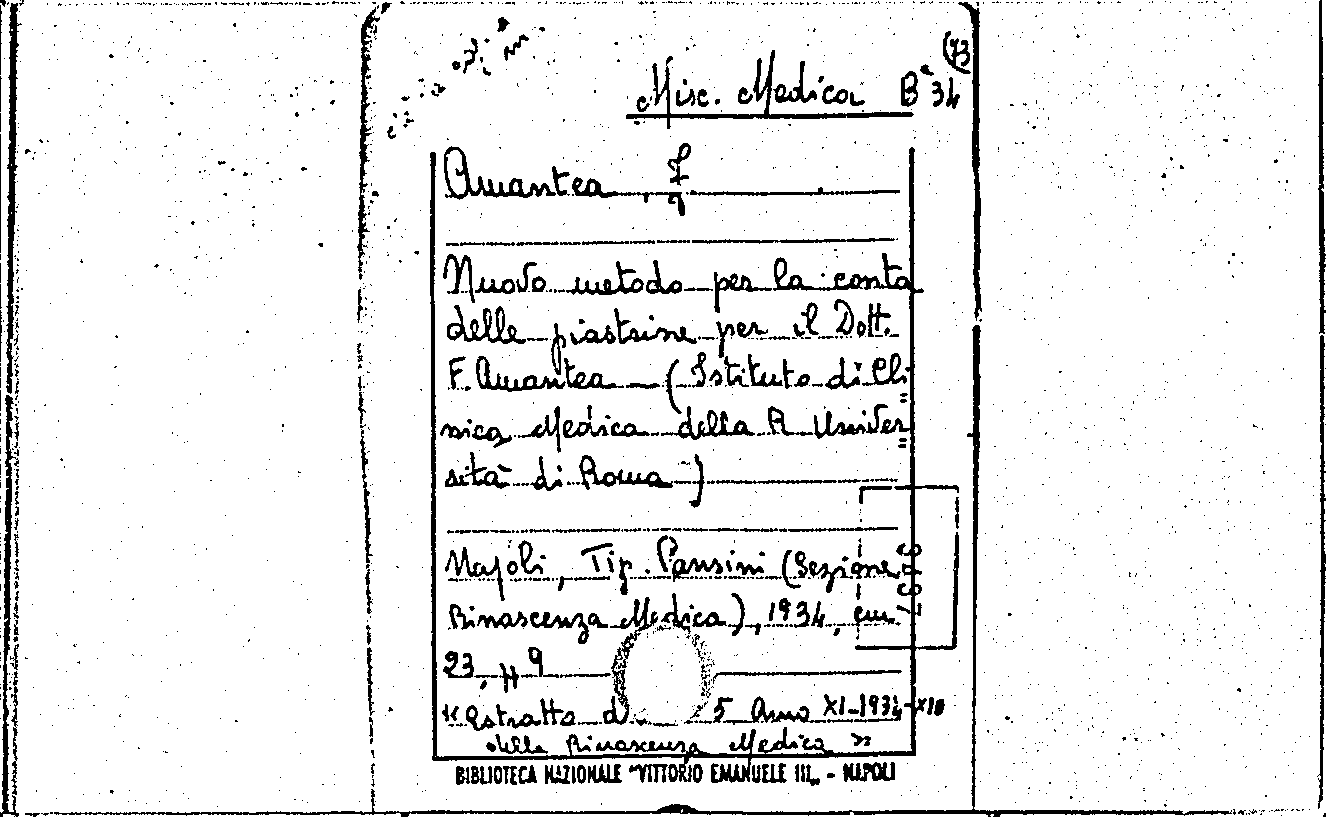 (73
Misc. Medica Bª 34
Amantea, F
Nuovo metodo per la conta
delle piastrine per il Dott.
F. Amantea — (Istituto di Cli
nica Medica della R Univer
sità di Roma)
Napoli, Tip. Pansini (Sezione
Rinascenza Medica), 1934, cm
23, pp 9
"Estratto d 5 Anno XI-1934-XII
della Rinascenza Medica"
BIBLIOTECA NAZIONALE "VITTORIO EMANUELE III„ - NAPOLI